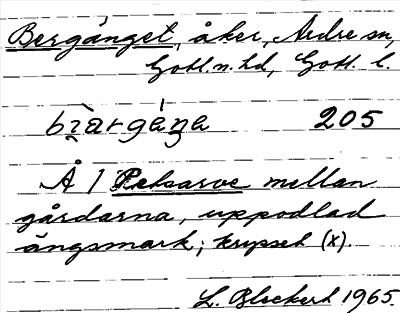 Bergänget, åker, Ardre sn,
Gotl. n. hd, Gotl. l.
205
Å / Petsarve mellan
gårdarna, uppodlad
ängsmark; krypset (x).
L. Blockert 1965.